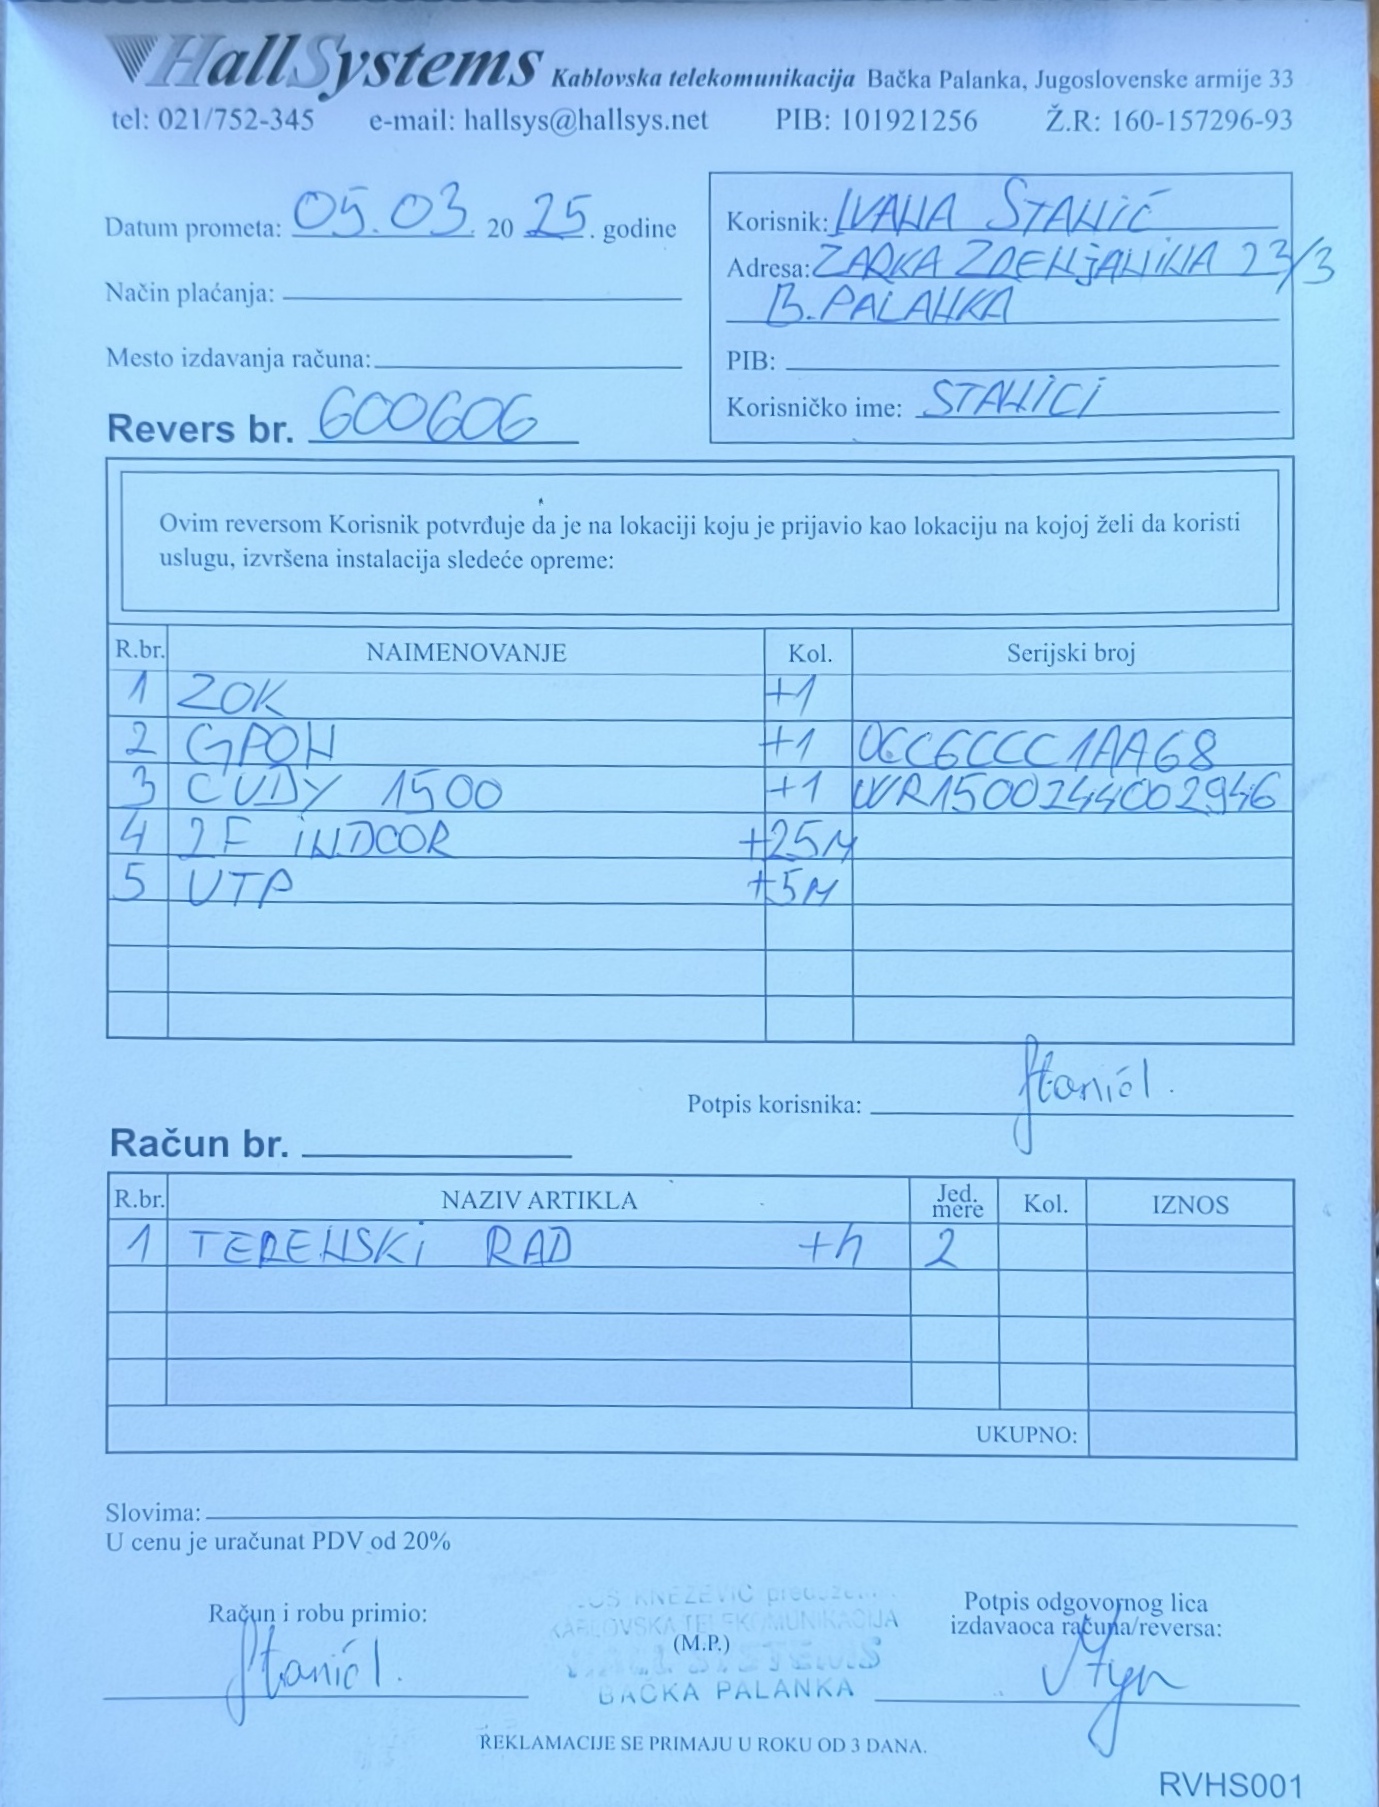 HallSystems Kablovska telekomunikacija Bačka Palanka, Jugoslovenske armije 33
tel: 021/752-345 e-mail: hallsys@hallsys.net PIB: 101921256 Ž.R: 160-157296-93
Datum prometa: 05.03. 20 25. godine
Način plaćanja:
Mesto izdavanja računa:
Revers br. 600606
Korisnik: IVANA STANIĆ
Adresa: ŽARKA ZRENjANiNA 23/3
B. PALANKA
PIB:
Korisničko ime: STANiCi
Ovim reversom Korisnik potvrđuje da je na lokaciji koju je prijavio kao lokaciju na kojoj želi da koristi
uslugu, izvršena instalacija sledeće opreme:
R.br. NAIMENOVANJE Kol. Serijski broj
1 ZOK +1
2 GPON +1 0CC6CCC1AA68
3 CUDY 1500 +1 WR1500244002946
4 2F iNDOOR +25M
5 UTP +5M
Potpis korisnika: Stanić I.
Račun br.
R.br. NAZIV ARTIKLA Jed. mere Kol. IZNOS
1 TERENSKi RAD +h 2
UKUPNO:
Slovima:
U cenu je uračunat PDV od 20%
Račun i robu primio:
Stanić I.
KNEZEVIĆ preduzeće
KABLOVSKA TELEKOMUNIKACIJA
(M.P.)
HALL SYSTEMS
BAČKA PALANKA
Potpis odgovornog lica
izdavaoca računa/reversa:
REKLAMACIJE SE PRIMAJU U ROKU OD 3 DANA.
RVHS001